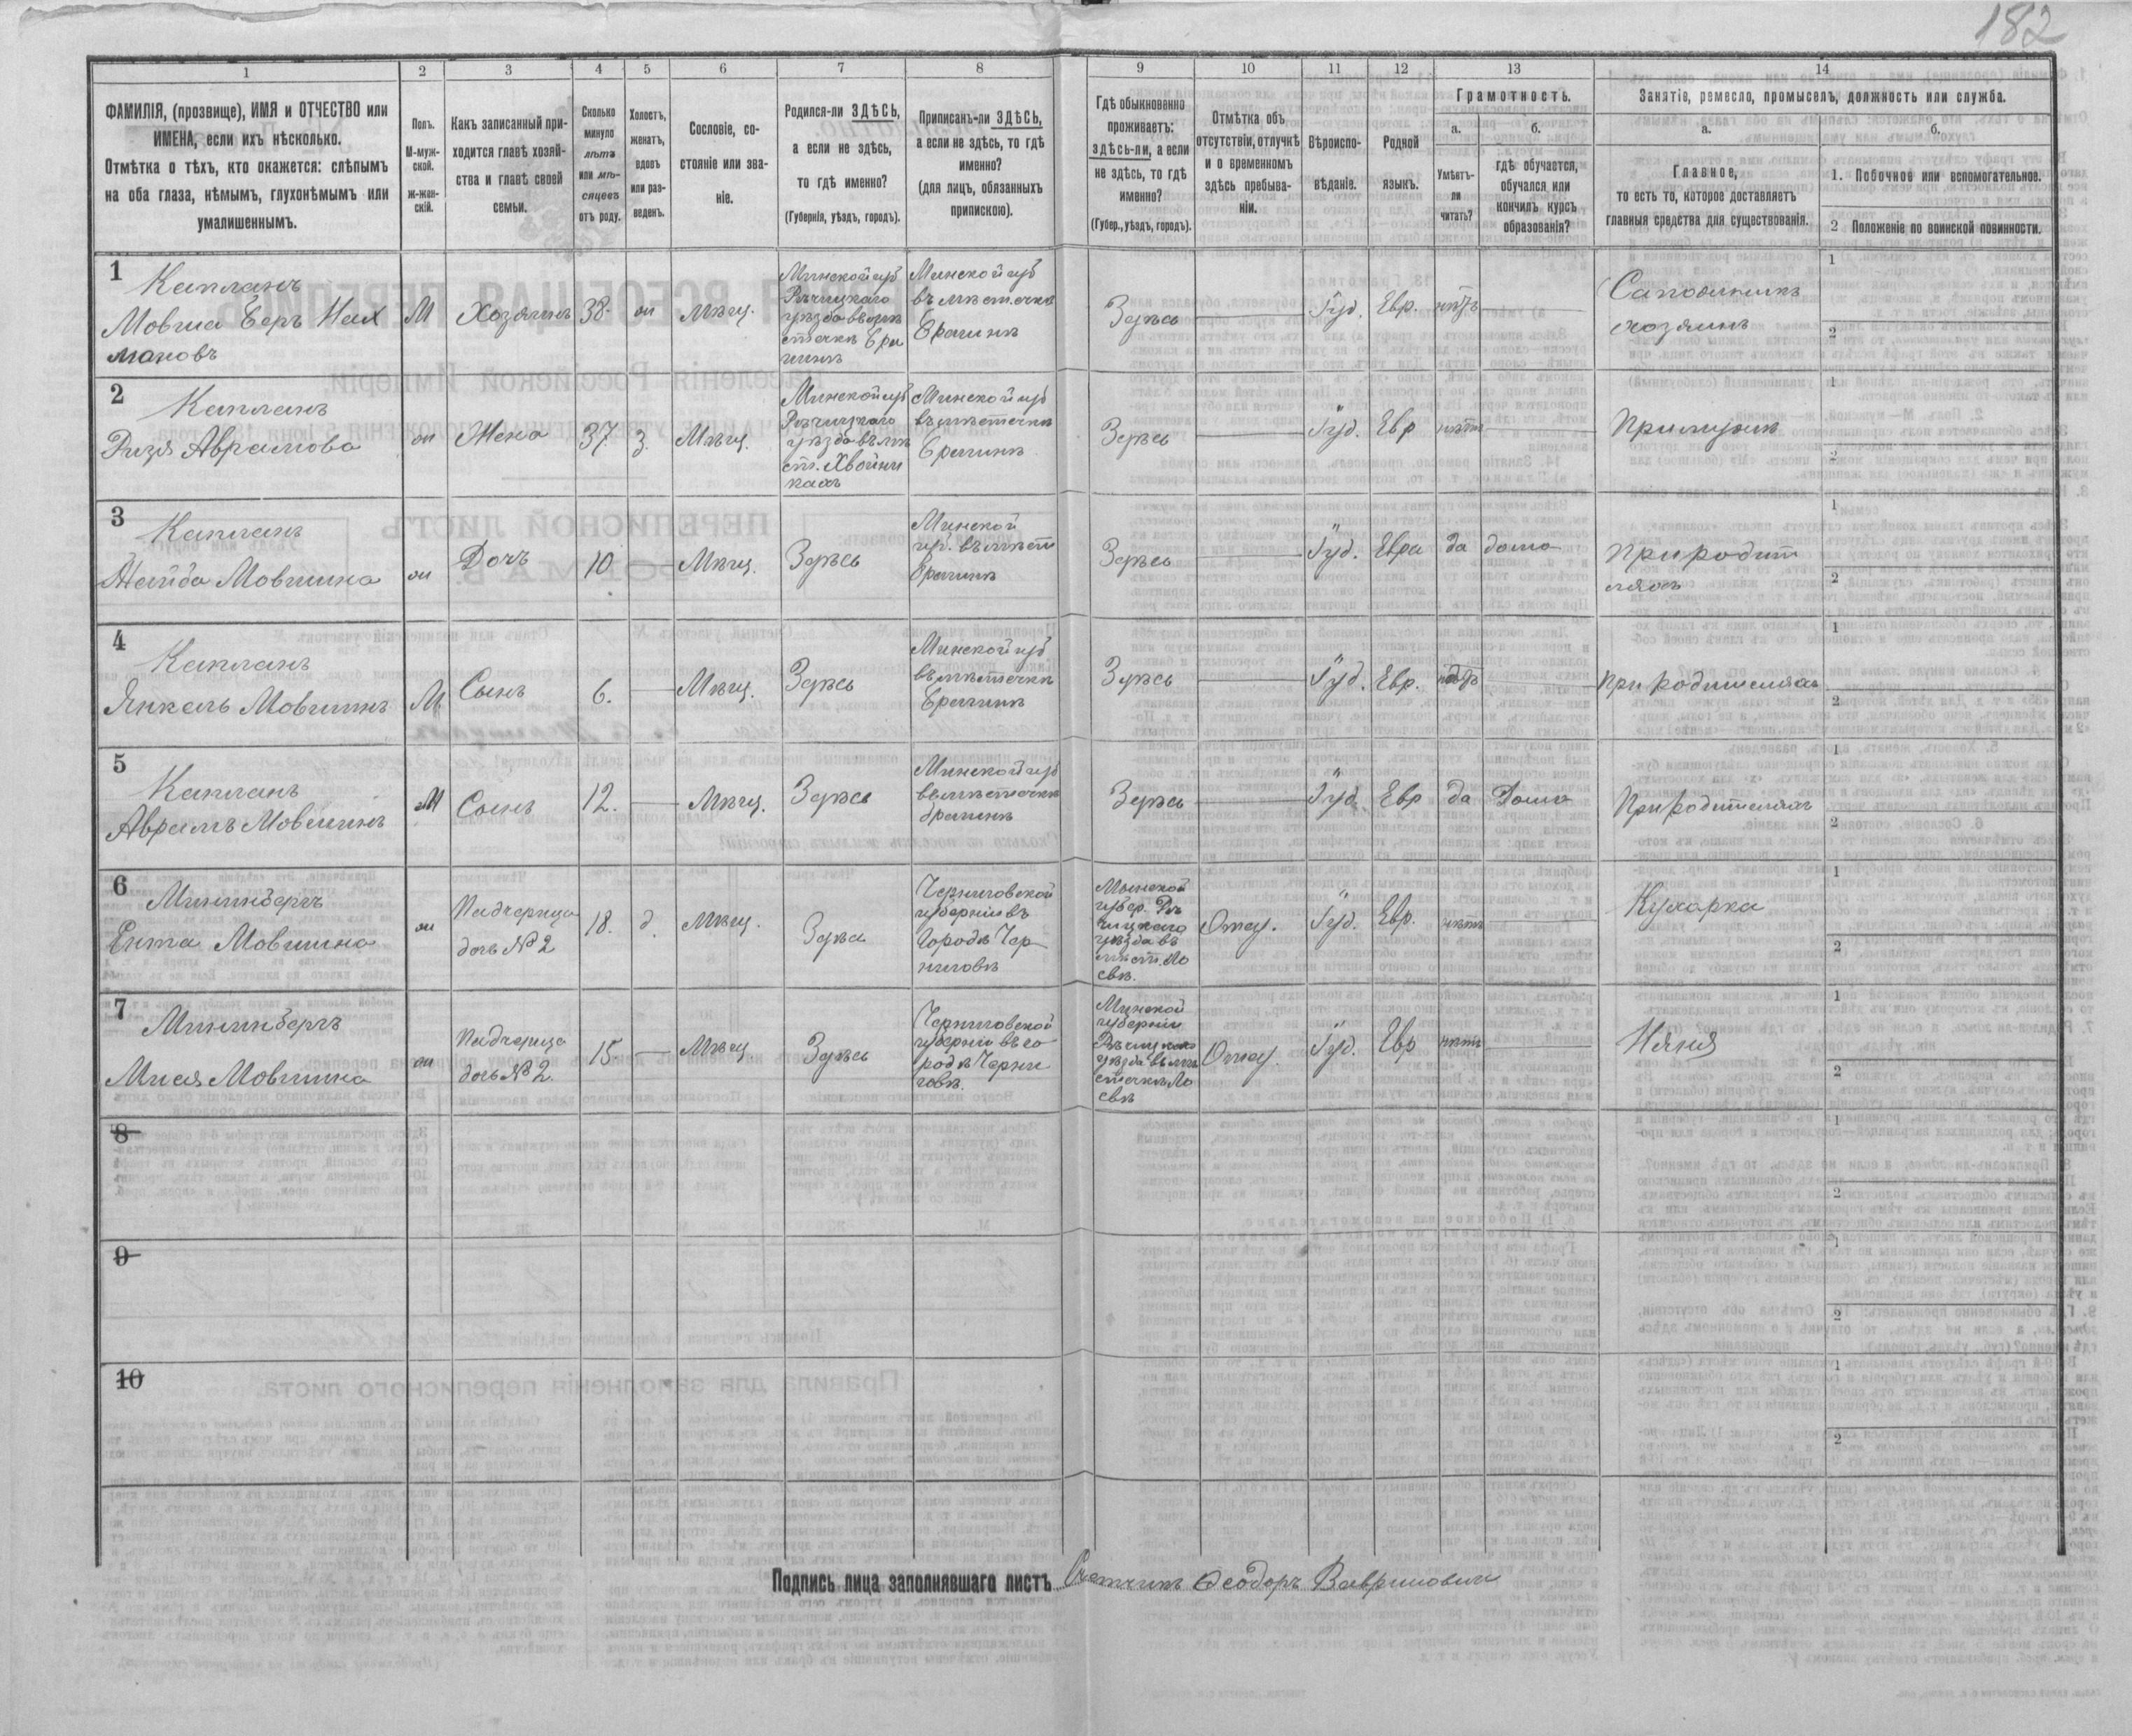 182
1 2 3 4 5 6 7 8 9 10 11 12 13 14
ФАМИЛІЯ, (прозвище), ИМЯ и ОТЧЕСТВО или
ИМЕНА, если ихъ нѣсколько.
Отмѣтка о тѣхъ, кто окажется: слѣпымъ
на оба глаза, нѣмымъ, глухонѣмымъ или
умалишеннымъ.
Полъ.
М-муж-
ской.
ж-жен-
скій.
Какъ записанный при-
ходится главѣ хозяй-
ства и главѣ своей
семьи.
Сколько
минуло
лѣтъ
или мѣ-
сяцевъ
отъ роду.
Холостъ,
женатъ,
вдовъ
или раз-
веденъ.
Сословіе, со-
стояніе или зва-
ніе.
Родился-ли ЗДѢСЬ,
а если не здѣсь,
то гдѣ именно?
(Губернія, уѣздъ, городъ).
Приписанъ-ли ЗДѢСЬ,
а если не здѣсь, то гдѣ
именно?
(для лицъ, обязанныхъ
припискою).
Гдѣ обыкновенно
проживаетъ:
здѣсь-ли, а если
не здѣсь, то гдѣ
именно?
(Губер., уѣздъ, городъ).
Отмѣтка объ
отсутствіи, отлучкѣ
и о временномъ
здѣсь пребыва-
ніи.
Вѣроиспо-
вѣданіе.
Родной
языкъ.
Грамотность.
а.
Умѣетъ-
ли
читать?
б.
гдѣ обучается,
обучался или
кончилъ курсъ
образованія?
Занятіе, ремесло, промыселъ, должность или служба.
а.
Главное,
то есть то, которое доставляетъ
главныя средства для существованія.
б.
1. Побочное или вспомогательное.
2 Положеніе по воинской повинности.
1
Капланъ
Мовша Беръ Нах
мановъ
М
Хозяинъ
38.
Мѣщ.
Минской губ
Рѣчицкаго
уѣзда въ мѣ
стечкѣ Бра
гинѣ
Минской губ
въ мѣстечкѣ
Брагинѣ
Здѣсь
Іуд.
Евр.
нѣтъ
Сапожникъ
хозяинъ
1
2
2
Капланъ
Рися Абрамова
Жена
37.
З.
Мѣщ.
Минской губ
Рѣчицкаго
уѣзда въ мѣ
ст. Хвойни
кахъ
Минской губ
въ мѣстечкѣ
Брагинѣ
Здѣсь
Іуд.
Евр
нѣтъ
При мужѣ
1
2
3
Капланъ
Мовшина
Дочь
10
Мѣщ.
Здѣсь
Минской
губ. въ мѣст
Брагинѣ
Здѣсь
Іуд.
да
дома
При родит
ляхъ
1
2
4
Капланъ
Янкель Мовшинъ
М
Сынъ
6.
Мѣщ.
Здѣсь
Минской губ
въ мѣстечкѣ
Брагинѣ
Здѣсь
Іуд.
Евр.
При родителяхъ
1
2
5
Капланъ
Абрамъ Мовшинъ
М
Сынъ
12.
Мѣщ.
Здѣсь
Минской губ
въ мѣстечкѣ
Брагинѣ
Здѣсь
Іуд.
Евр
да
Дома
При родителяхъ
1
2
6
Мининбергъ
Ента Мовшина
Падчерица
дочь № 2
18.
д.
Мѣщ.
Черниговской
губерніи въ
Городѣ Чер
ниговѣ
Минской
губер. Рѣ
чицкаго
уѣзда въ
мѣст. Ло
евѣ.
Отлу.
Іуд.
Евр.
нѣтъ
Кухарка
1
2
7
Мининбергъ
Мися Мовшина
Падчерица
дочь № 2
15
Мѣщ.
Здѣсь
Черниговской
губерніи въ го
родѣ Черни
говѣ.
Минской
губерніи
Рѣчицкаго
уѣзда въ мѣ
стечкѣ Ло
евѣ
Отлу.
Іуд.
Евр
нѣтъ
Няня
1
2
8
1
2
9
1
2
10
1
2
Подпись лица заполнявшаго листъ Счетчикъ Ѳеодоръ Вавриновичъ